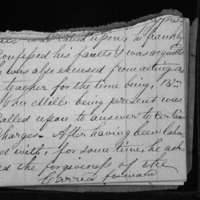 called upon, he frankly
confessed his faults & was acquitted
was also excused from acting as
teacher for the time being, Brn
John Mells being present was
called upon to answer to certain
charges. After having been labor
ed with, for some time, he ask
ed the forgiveness of the
Carried forward